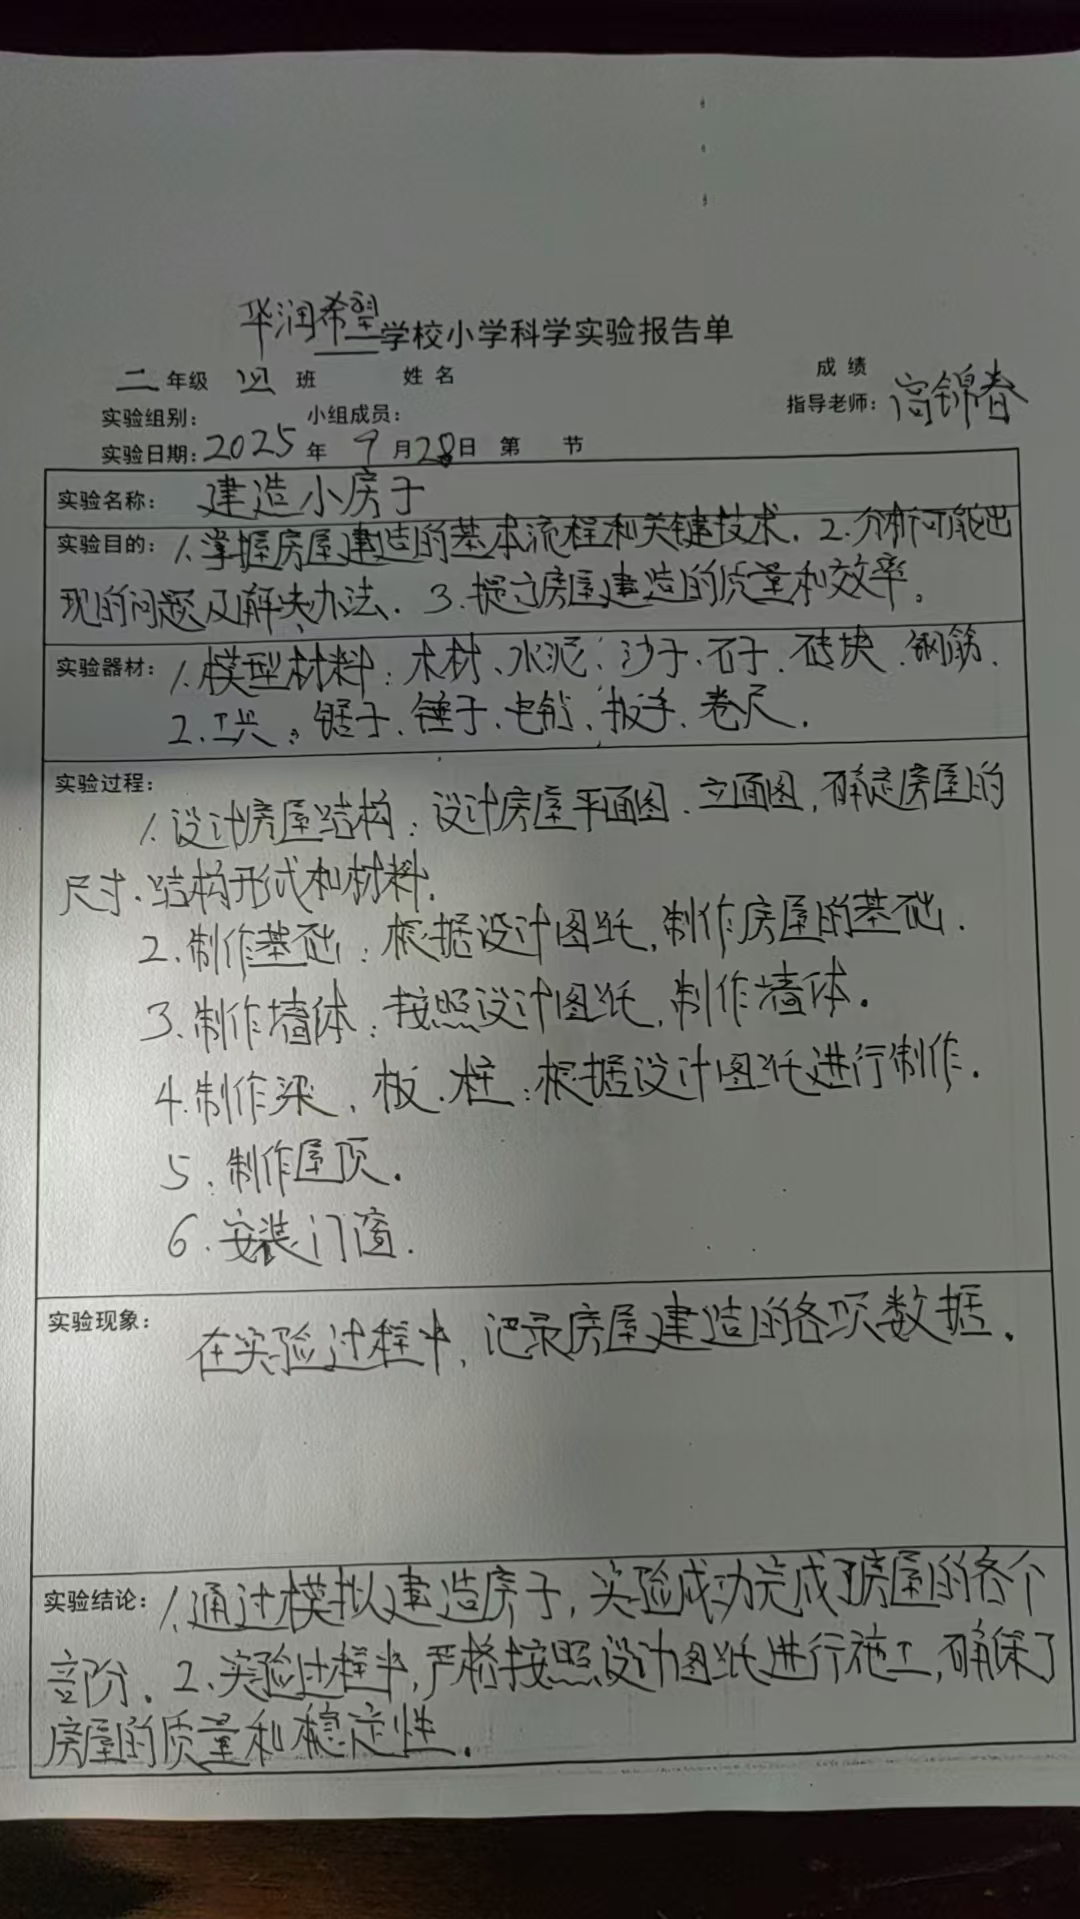 华润希望学校小学科学实验报告单
二年级 四班 姓名 成绩
实验组别: 小组成员: 指导老师: 高锦春
实验日期: 2025年 9月28日 第 节
实验名称: 建造小房子
实验目的: 1.掌握房屋建造的基本流程和关键技术. 2.分析可能出
现的问题及解决办法. 3.提高房屋建造的质量和效率。
实验器材: 1.模型材料: 木材、水泥、沙子、石子、砖块、钢筋.
2.工具: 锯子、锤子、电钻、扳手、卷尺.
实验过程:
1.设计房屋结构: 设计房屋平面图、立面图, 确定房屋的
尺寸、结构形式和材料.
2.制作基础: 根据设计图纸, 制作房屋的基础.
3.制作墙体: 按照设计图纸, 制作墙体.
4.制作梁、板、柱: 根据设计图纸进行制作.
5.制作屋顶.
6.安装门窗.
实验现象: 在实验过程中, 记录房屋建造的各项数据.
实验结论: 1.通过模拟建造房子, 实验成功完成了房屋的各个
部分. 2.实验过程中, 严格按照设计图纸进行施工, 确保了
房屋的质量和稳定性.